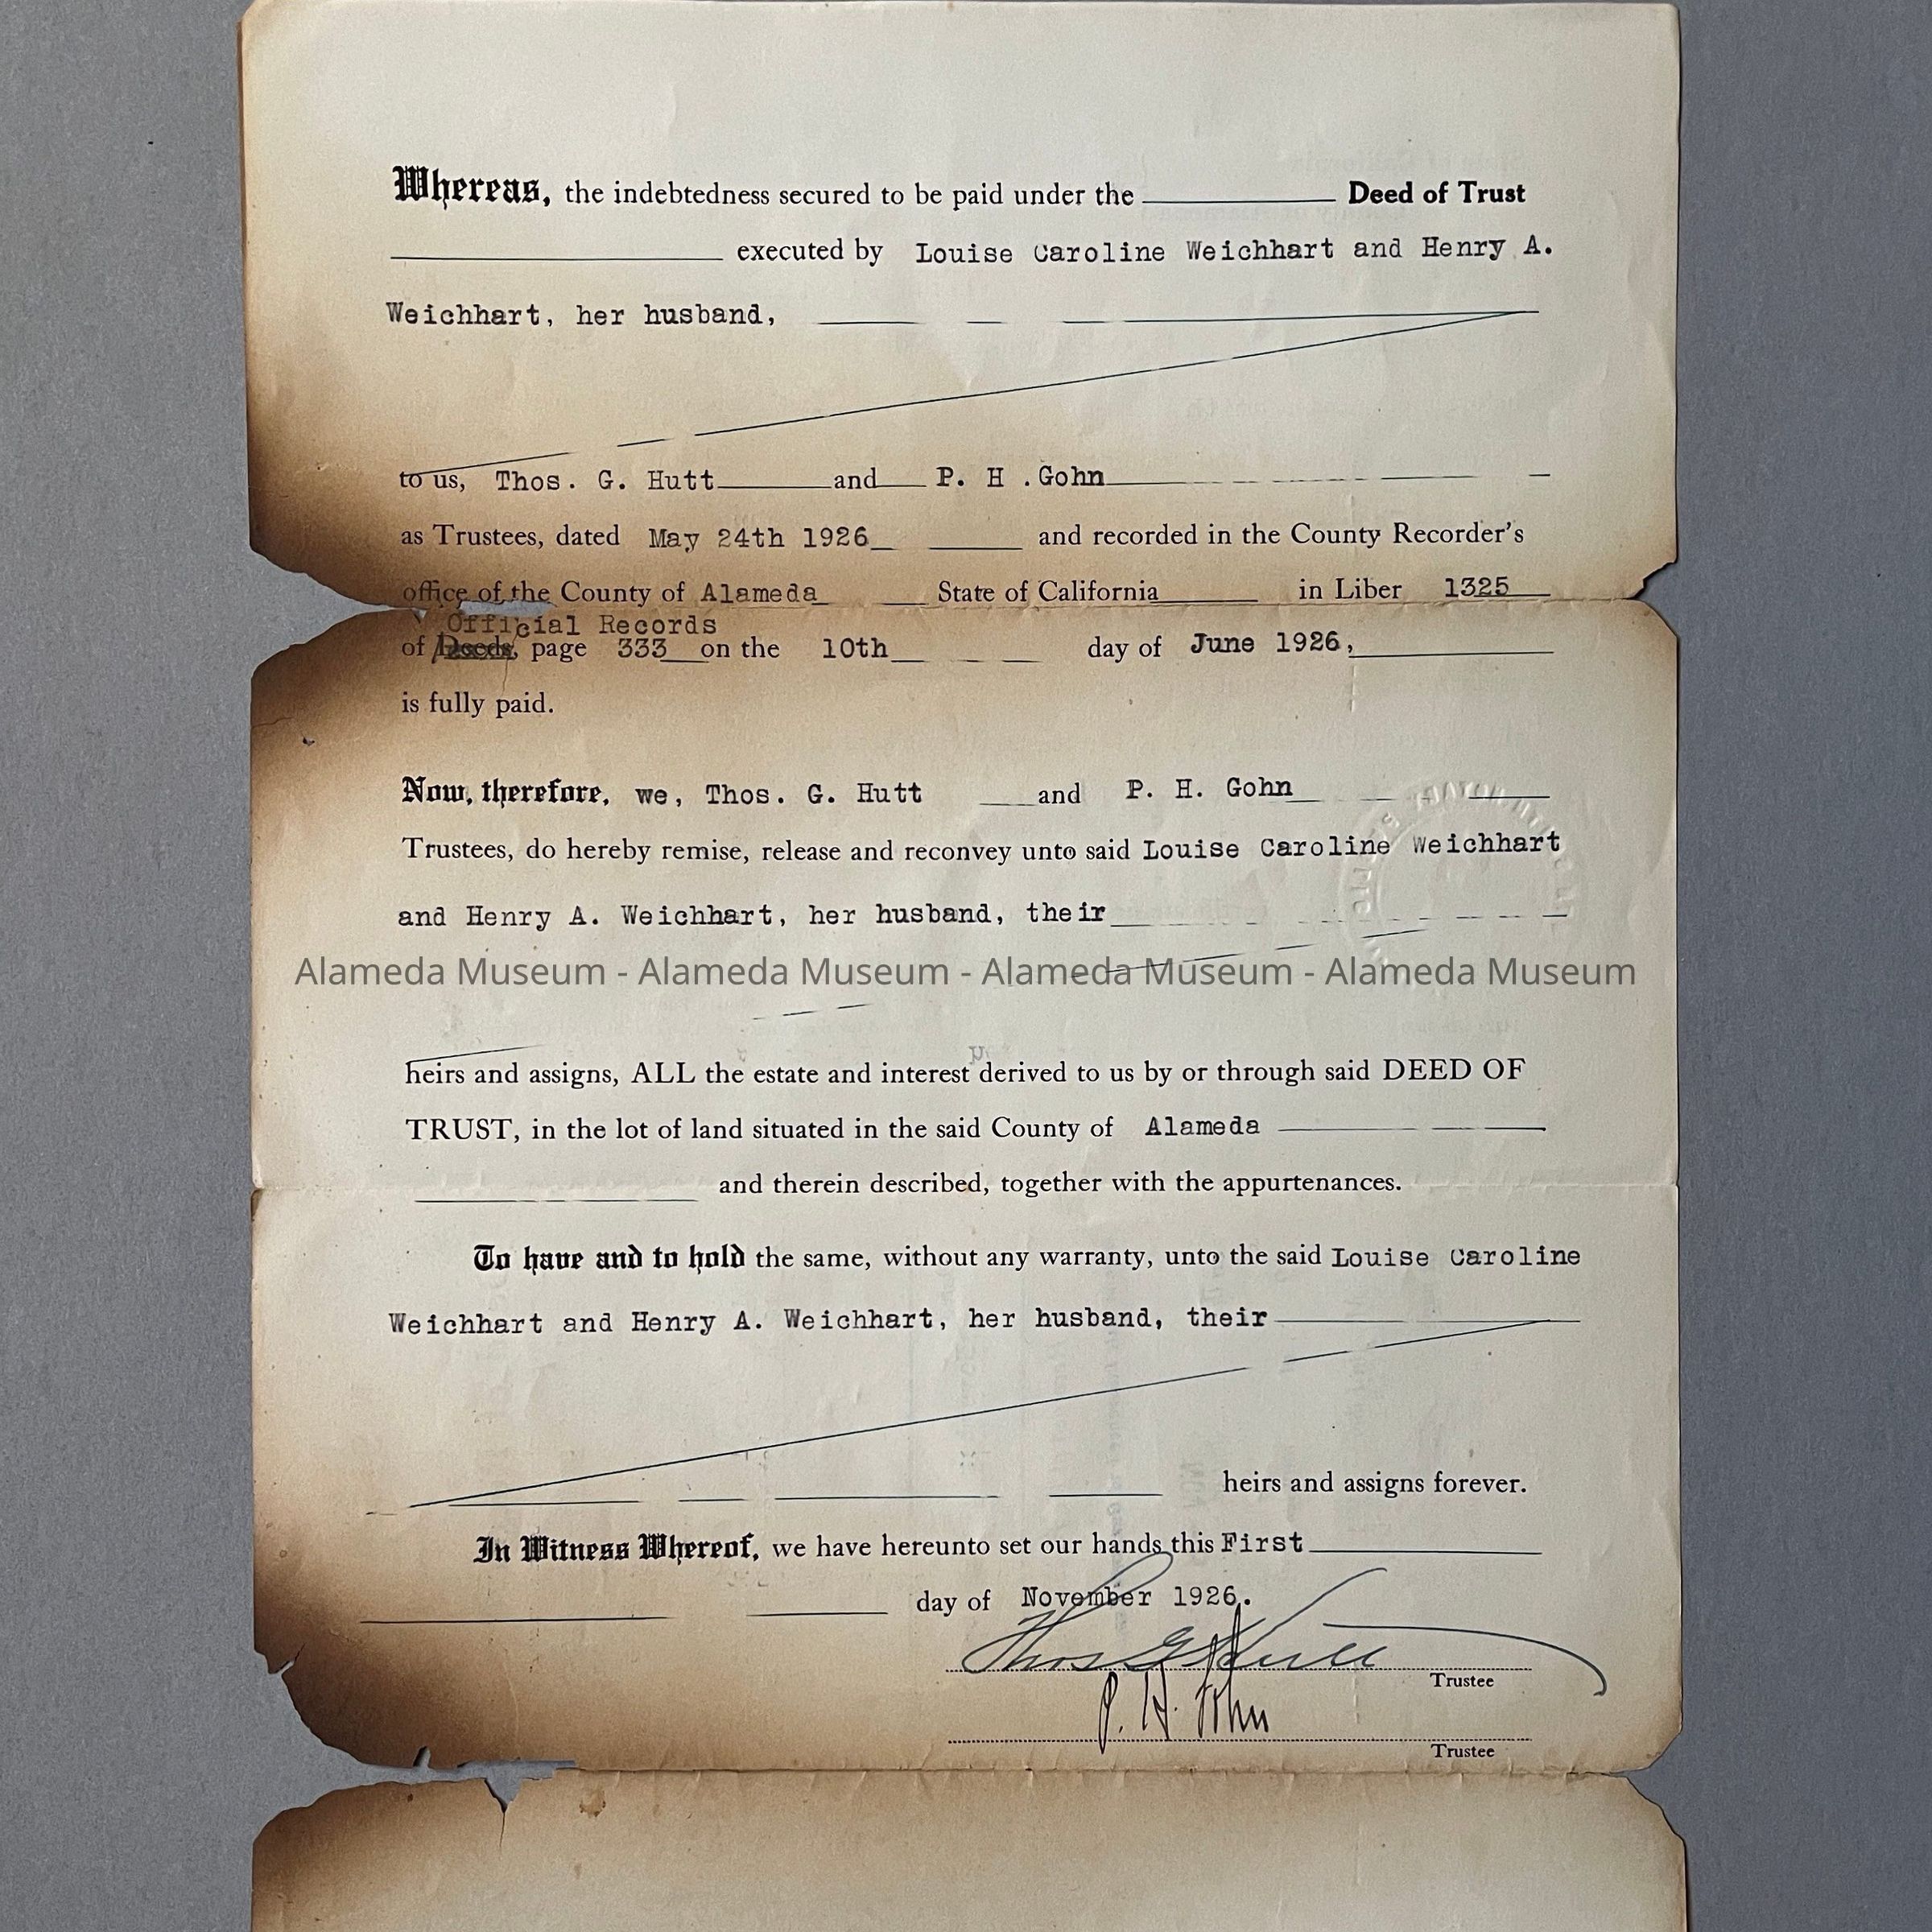 Whereas, the indebtedness secured to be paid under the Deed of Trust
executed by Louise Caroline Weichhart and Henry A.
Weichhart, her husband,
to us, Thos. G. Hutt and P. H .Gohn
as Trustees, dated May 24th 1926 and recorded in the County Recorder's
office of the County of Alameda State of California in Liber 1325
Official Records
of Deeds, page 333 on the 10th day of June 1926,
is fully paid.
Now, therefore, we, Thos. G. Hutt and P. H. Gohn
Trustees, do hereby remise, release and reconvey unto said Louise Caroline Weichhart
and Henry A. Weichhart, her husband, their
Alameda Museum - Alameda Museum - Alameda Museum - Alameda Museum
heirs and assigns, ALL the estate and interest derived to us by or through said DEED OF
TRUST, in the lot of land situated in the said County of Alameda
and therein described, together with the appurtenances.
To have and to hold the same, without any warranty, unto the said Louise Caroline
Weichhart and Henry A. Weichhart, her husband, their
heirs and assigns forever.
In Witness Whereof, we have hereunto set our hands this First
day of November 1926.
Thos G Hutt
Trustee
P. H. Gohn
Trustee